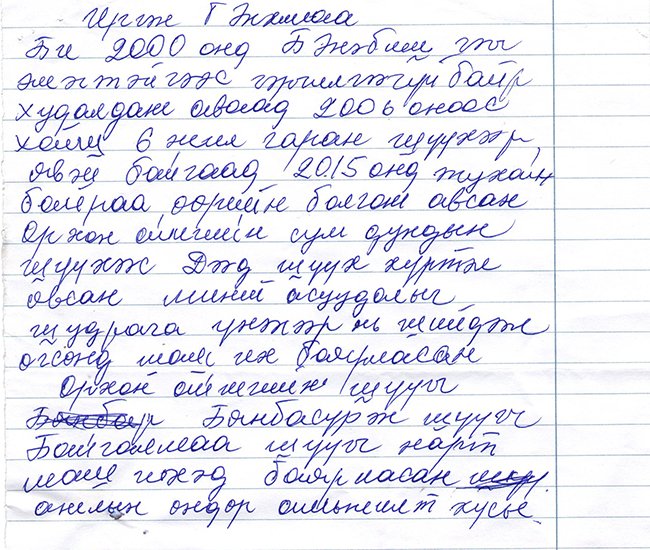 Иргэн Г Энхмаа
Би 2000 онд Б Энэбиш гэгч
эмэгтэйгээс гэрчилгээгүй байр
худалдаж аваад 2006 оноос
хойш 6 жил гаран шүүхээр
явж байгаад 2015 онд тухайн
байраа өөрийн болгож авсан
Орхон аймгийн сум дундын
шүүхээс Дээд шүүх хүртэл
явсан миний асуудалыг
шударга үнэнээр нь шийдэж
өгсөнд маш их баярласан
Орхон аймгийн шүүгч
Бямбасүрэн шүүгч
Баигалмаа шүүгч нарт
маш ихээд баярласан
ажлын өндөр амжилт хүсье.